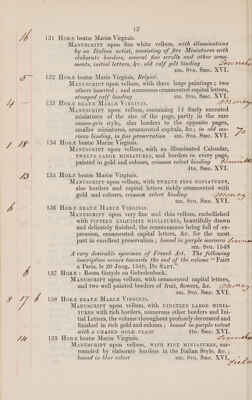 12
16 131 HORÆ beatæ Mariæ Virginis.
MANUSCRIPT upon fine white vellum, with illuminations
by an Italian artist, consisting of five Miniatures with
elaborate borders, several fine scrolls and other orna-
ments, initial letters, &c. old calf gilt binding
sm. 8vo. SÆC. XVI.
5 132 HORÆ beatæ Mariæ Virginis, Belgicè.
MANUSCRIPT upon vellum, with three large paintings; two
others inserted; and numerous ornamented capital letters,
stamped calf binding sm. 8vo. SÆC. XVI.
4 133 HORÆ BEATÆ MARIÆ VIRGINIS. Money
MANUSCRIPT upon vellum, containing 14 finely executed
miniatures of the size of the page, partly in the rare
cameo-gris style, also borders to the opposite pages,
smaller miniatures, ornamented capitals, &c.; in old mo-
rocco binding, in fine preservation sm. 8vo. SÆC. XVI.
1 18 134 HORÆ beatæ Mariæ Virginis.
MANUSCRIPT upon vellum, with an illuminated Calendar,
TWELVE LARGE MINIATURES, and borders to every page,
painted in gold and colours, crimson velvet binding
4to. SÆC. XVI.
13 135 HORÆ beatæ Mariæ Virginis.
MANUSCRIPT upon vellum, with TWELVE FINE MINIATURES,
also borders and capital letters richly ornamented with
gold and colours, crimson velvet binding Money
sm. 8vo. SÆC. XVI.
6 136 HORÆ BEATÆ MARIÆ VIRGINIS.
MANUSCRIPT upon very fine and thin vellum, embellished
with FIFTEEN EXQUISITE MINIATURES, beautifully drawn
and delicately finished, the countenances being full of ex-
pression, ornamented capital letters, &c. for the most
part in excellent preservation; bound in purple morocco
sm. 8vo. 1548
A very desirable specimen of French Art. The following
inscription occurs towards the end of the volume "Faict
a Paris, le 20 Jung, 1548, Du Sart."
6 137 HORÆ; Boem Ghetis en Gebedenboek.
MANUSCRIPT upon vellum, with ornamented capital letters,
and two well painted borders of fruit, flowers, &c. Money
sm. 8vo. SÆC. XVI.
8 17 6 138 HORÆ BEATÆ MARIÆ VIRGINIS.
MANUSCRIPT upon vellum, with NINETEEN LARGE MINIA-
TURES with rich borders, numerous other borders and Ini-
tial Letters, the volume throughout profusely decorated and
finished in rich gold and colours; bound in purple velvet
with a CHASED GOLD CLASP 4to. SÆC. XVI.
14 139 HORÆ beatæ Mariæ Virginis.
MANUSCRIPT upon vellum, WITH FIVE MINIATURES, sur-
rounded by elaborate borders in the Italian Style, &c.;
bound in blue velvet sm. 8vo. SÆC. XVI.